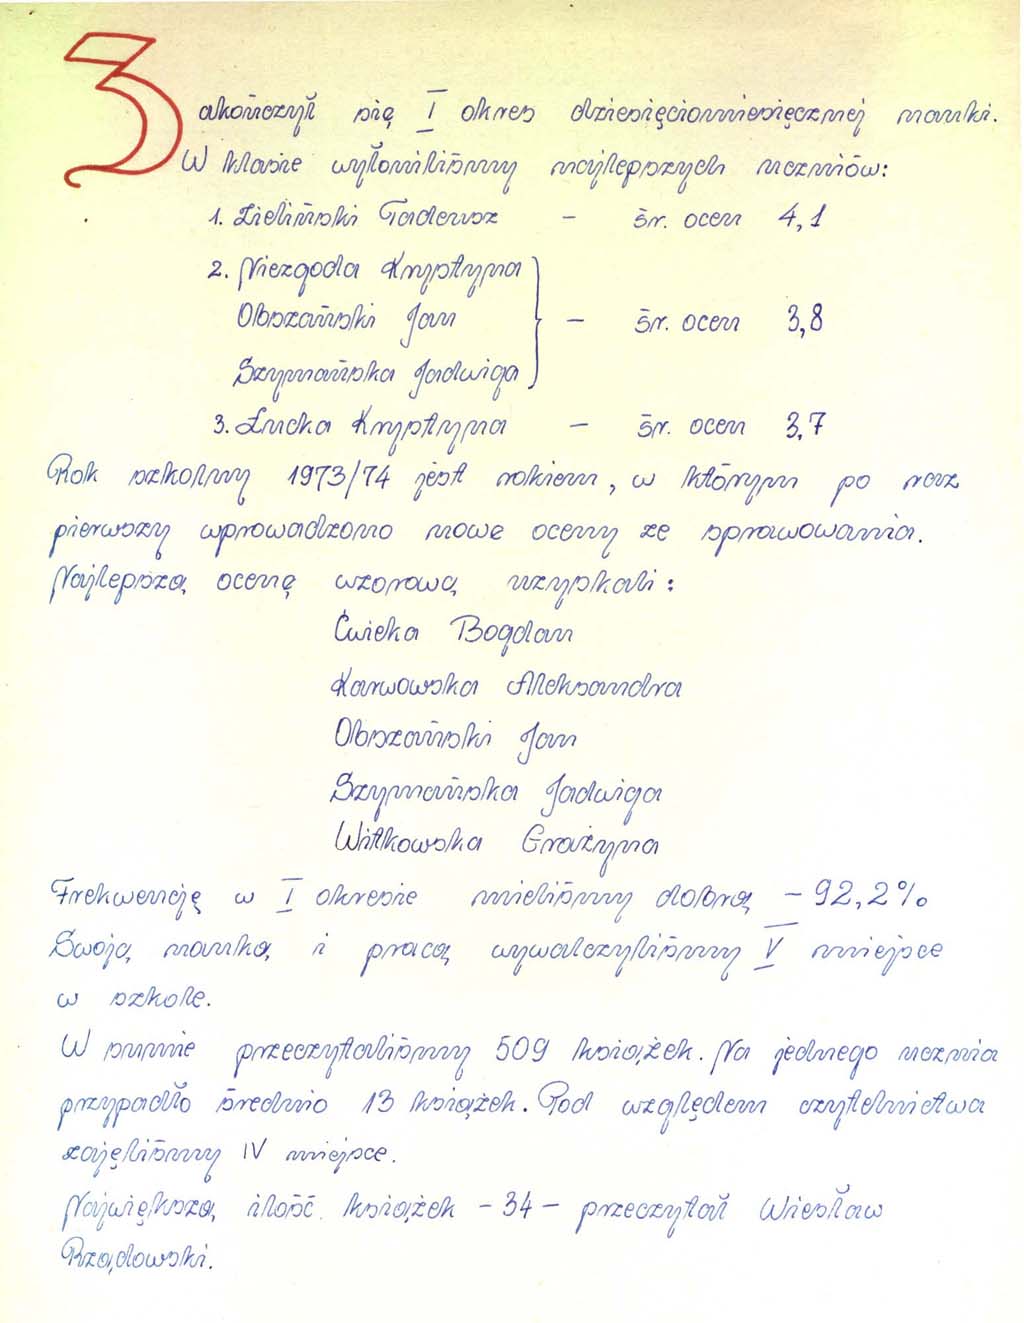 Zakończył się I okres dziesięciomiesięcznej nauki.
W klasie wyłoniliśmy najlepszych uczniów:
1. Zieliński Tadeusz - śr. ocen 4,1
2. Niezgoda Krystyna
Olszański Jan - śr. ocen 3,8
Szymańska Jadwiga
3. Łucka Krystyna - śr. ocen 3,7
Rok szkolny 1973/74 jest rokiem, w którym po raz
pierwszy wprowadzono nowe oceny ze sprawowania.
Najlepszą ocenę wzorową uzyskali:
Ćwieka Bogdan
Karwowska Aleksandra
Olszański Jan
Szymańska Jadwiga
Witkowska Grażyna
Frekwencję w I okresie mieliśmy dobrą - 92,2%
Swoją nauką i pracą wywalczyliśmy V miejsce
w szkole.
W sumie przeczytaliśmy 509 książek. Na jednego ucznia
przypadło średnio 13 książek. Pod względem czytelnictwa
zajęliśmy IV miejsce.
Największą ilość książek - 34 - przeczytał Wiesław
Rządowski.